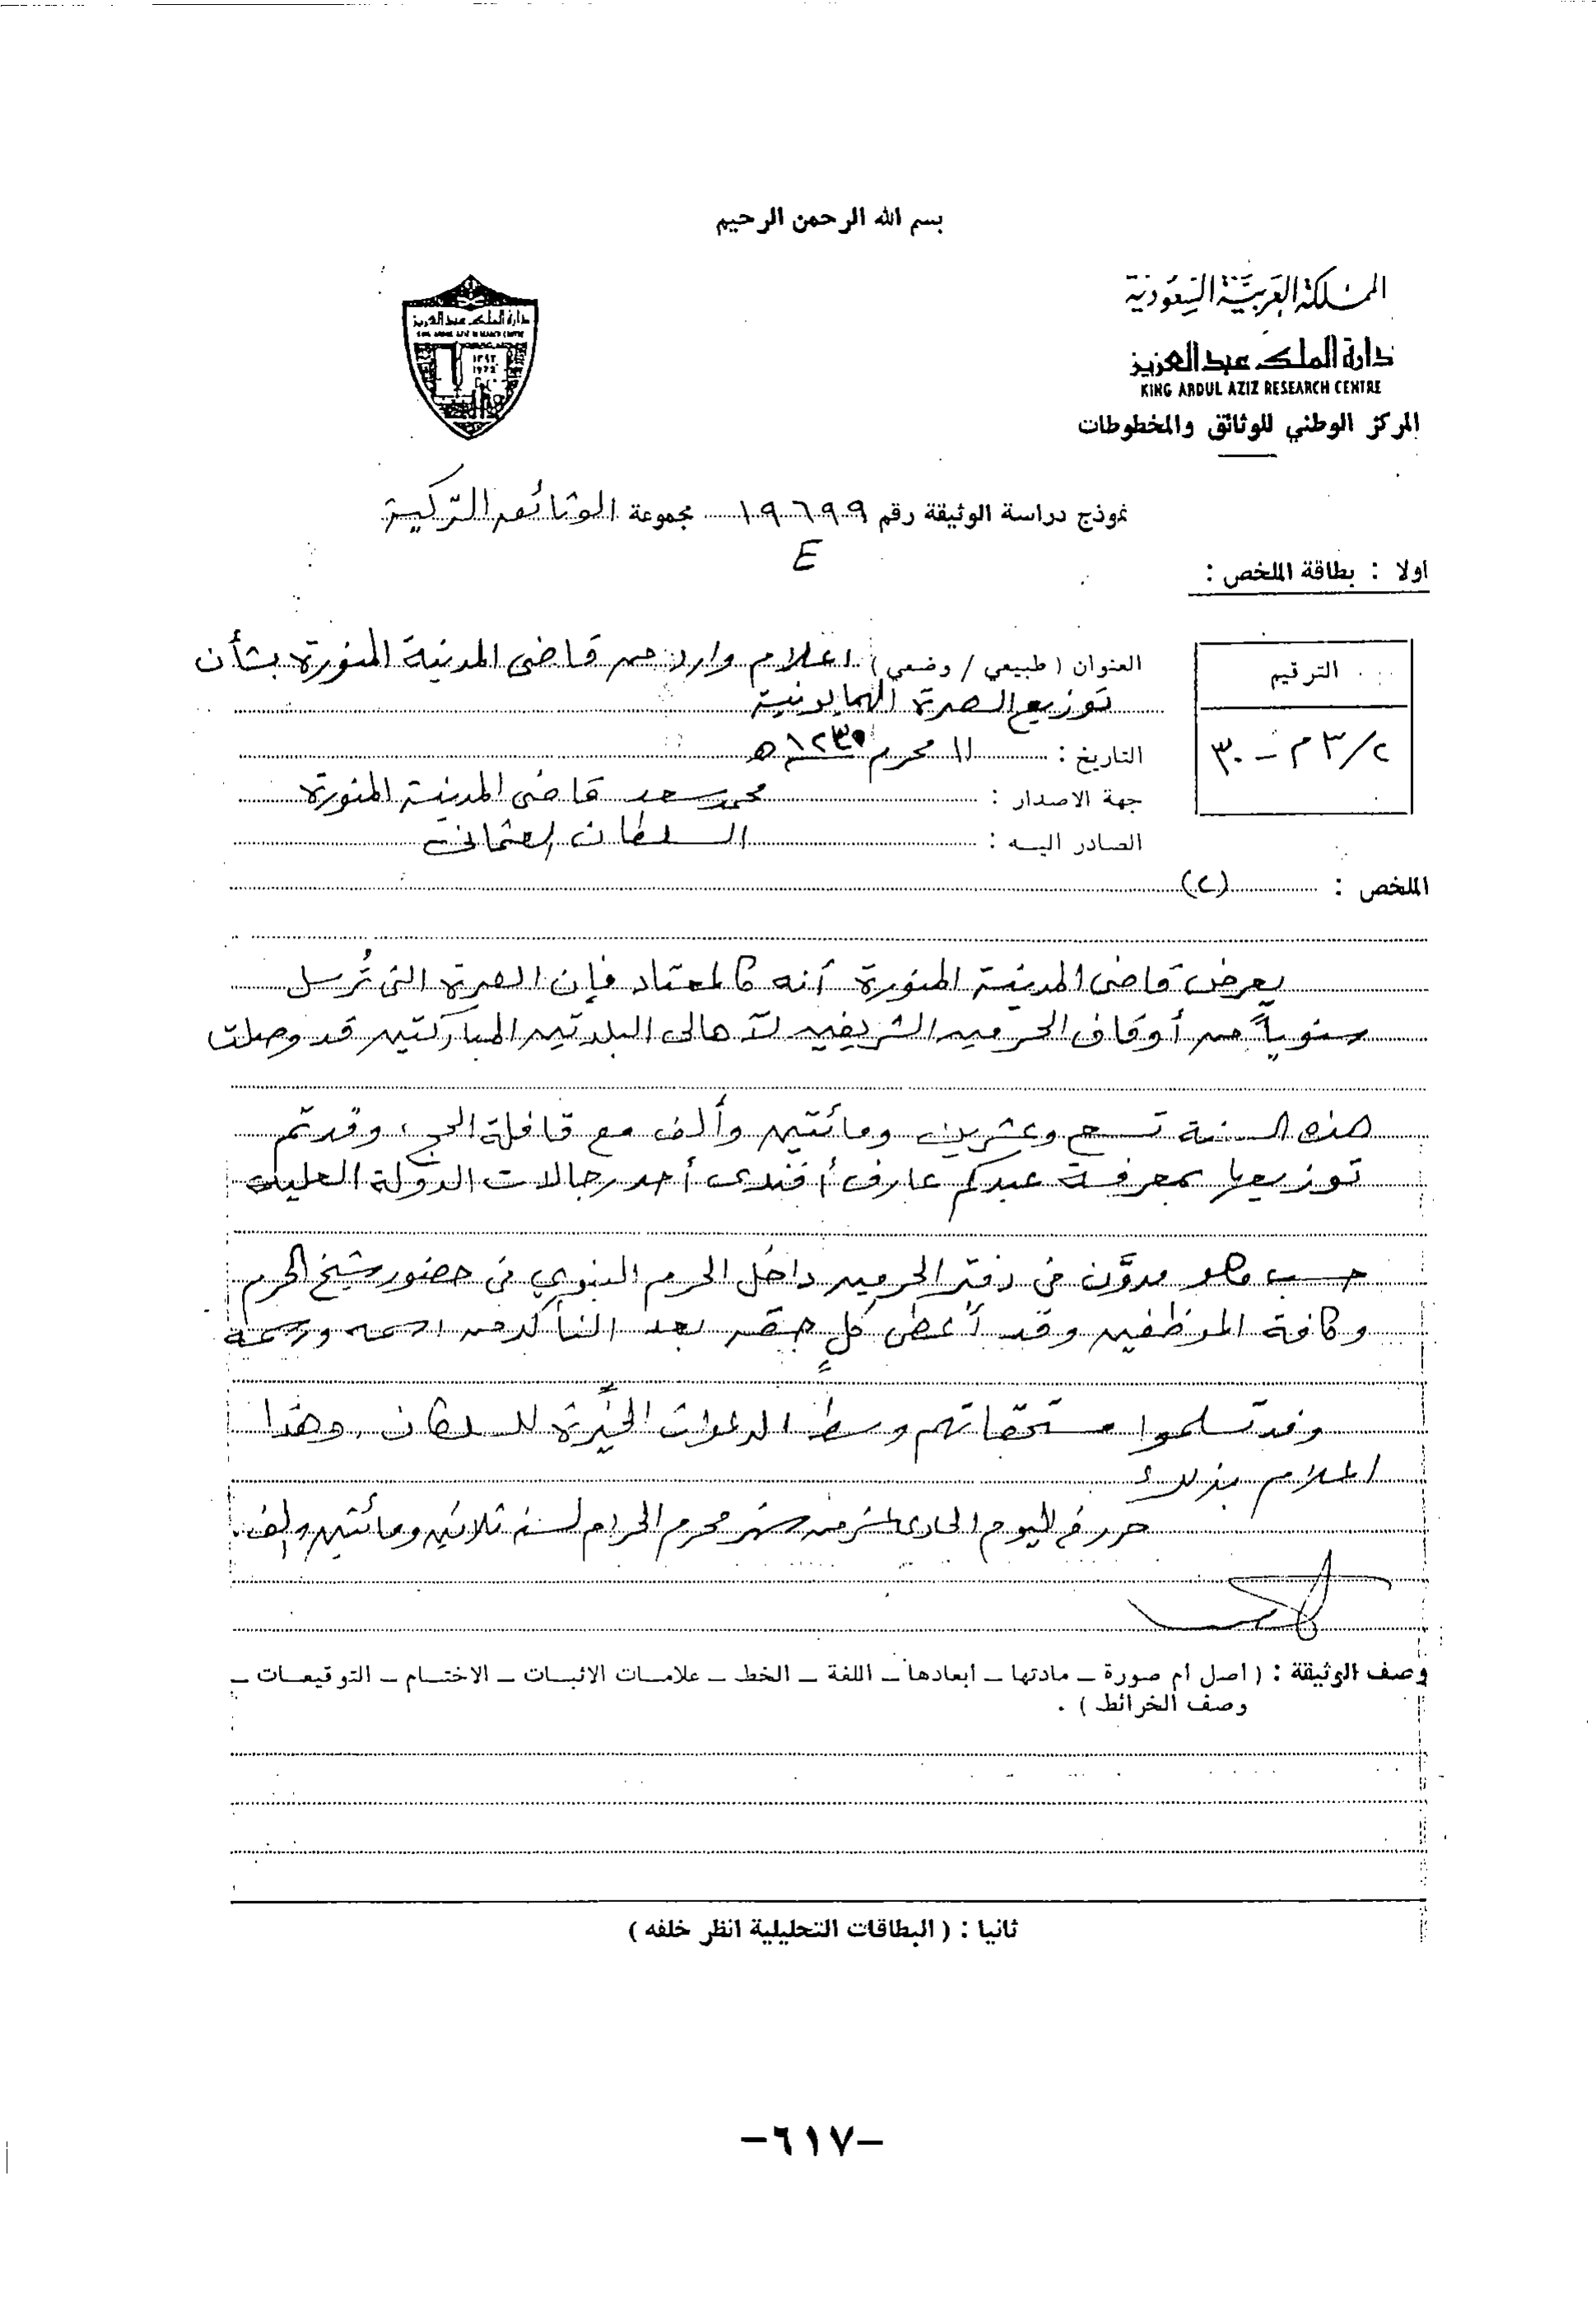 بسم الله الرحمن الرحيم
المملكة العربية السعودية
دارة الملك عبد العزيز
KING ABDUL AZIZ RESEARCH CENTRE
المركز الوطني للوثائق والمخطوطات
دارة الملك عبد العزيز
KING ABDUL AZIZ RESEARCH CENTRE
١٣٩٢
1972
نموذج دراسة الوثيقة رقم ١٩٦٩٩ مجموعة الوثائق التركية
E
اولا : بطاقة الملخص :
الترقيم
٢/٣ م - ٣٠
العنوان ( طبيعي / وضعي ) اعلام وارد من قاضى المدينة المنورة بشأن
توزيع الصرة الهمايونية
التاريخ : ١١ محرم ١٢٣٠ هـ
جهة الاصدار : محمد سعد قاضى المدينة المنورة
الصادر اليه : السلطان العثمانى
الملخص : (٢)
يعرض قاضى المدينة المنورة أنه كالمعتاد فإن الصرة التى تُرسل
سنوياً من أوقاف الحرمين الشريفين لأهالى البلدتين المباركتين قد وصلت
هذه السنة تسع وعشرين ومائتين وألف مع قافلة الحج، وقد تم
توزيعها بمعرفة عبدكم عارف أفندى أحد رجالات الدولة العلية
حسب ما هو مدوَّن فى دفتر الحرمين داخل الحرم النبوي فى حضور شيخ الحرم
وكافة الموظفين وقد أعطى كلٍ حقه بعد التأكد من اسمه ورسمه
وقد تسلموا مستحقاتهم وسط الدعوات الخيِّرة للسلطان، وهذا
اعلام بذلك
حرر فى اليوم الحادى عشر من شهر محرم الحرام لسنة ثلاثين ومائتين وألف.
وصف الوثيقة : ( اصل أم صورة ــ مادتها ــ ابعادها ــ اللغة ــ الخط ــ علامات الاثبات ــ الاختام ــ التوقيعات ــ
وصف الخرائط ) .
ثانيا : ( البطاقات التحليلية انظر خلفه )
-٦١٧-